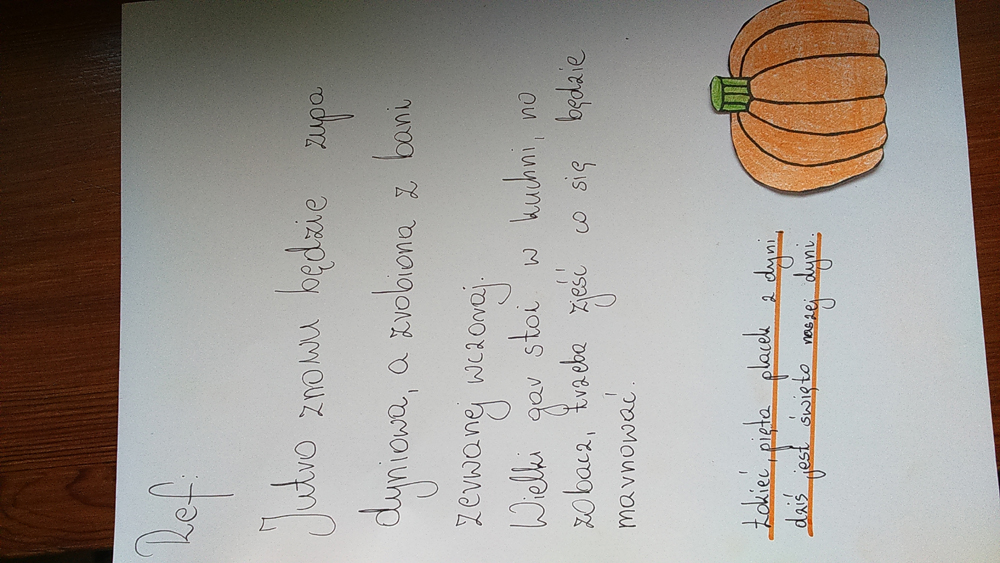 Ref:
Jutro znowu będzie zupa
dyniowa, a zrobiona z bani
zerwanej wczoraj.
Wielki gar stoi w kuchni, no
zobacz, trzeba zjeść co się będzie
marnować.
Łokieć, pięta placek z dyni,
dziś jest święto naszej dyni.